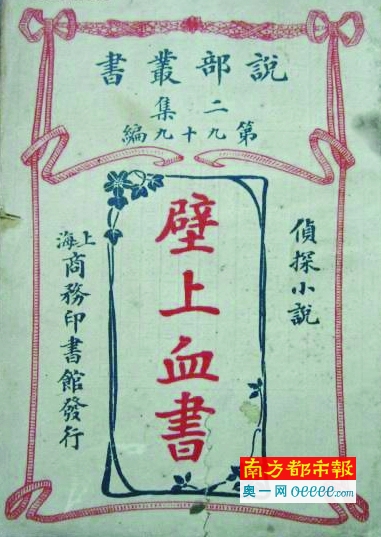 說部叢書
二集
第九十九編
偵探小說
壁上血書
上海商務印書館發行
南方都市報
奥一网 oeeee.com